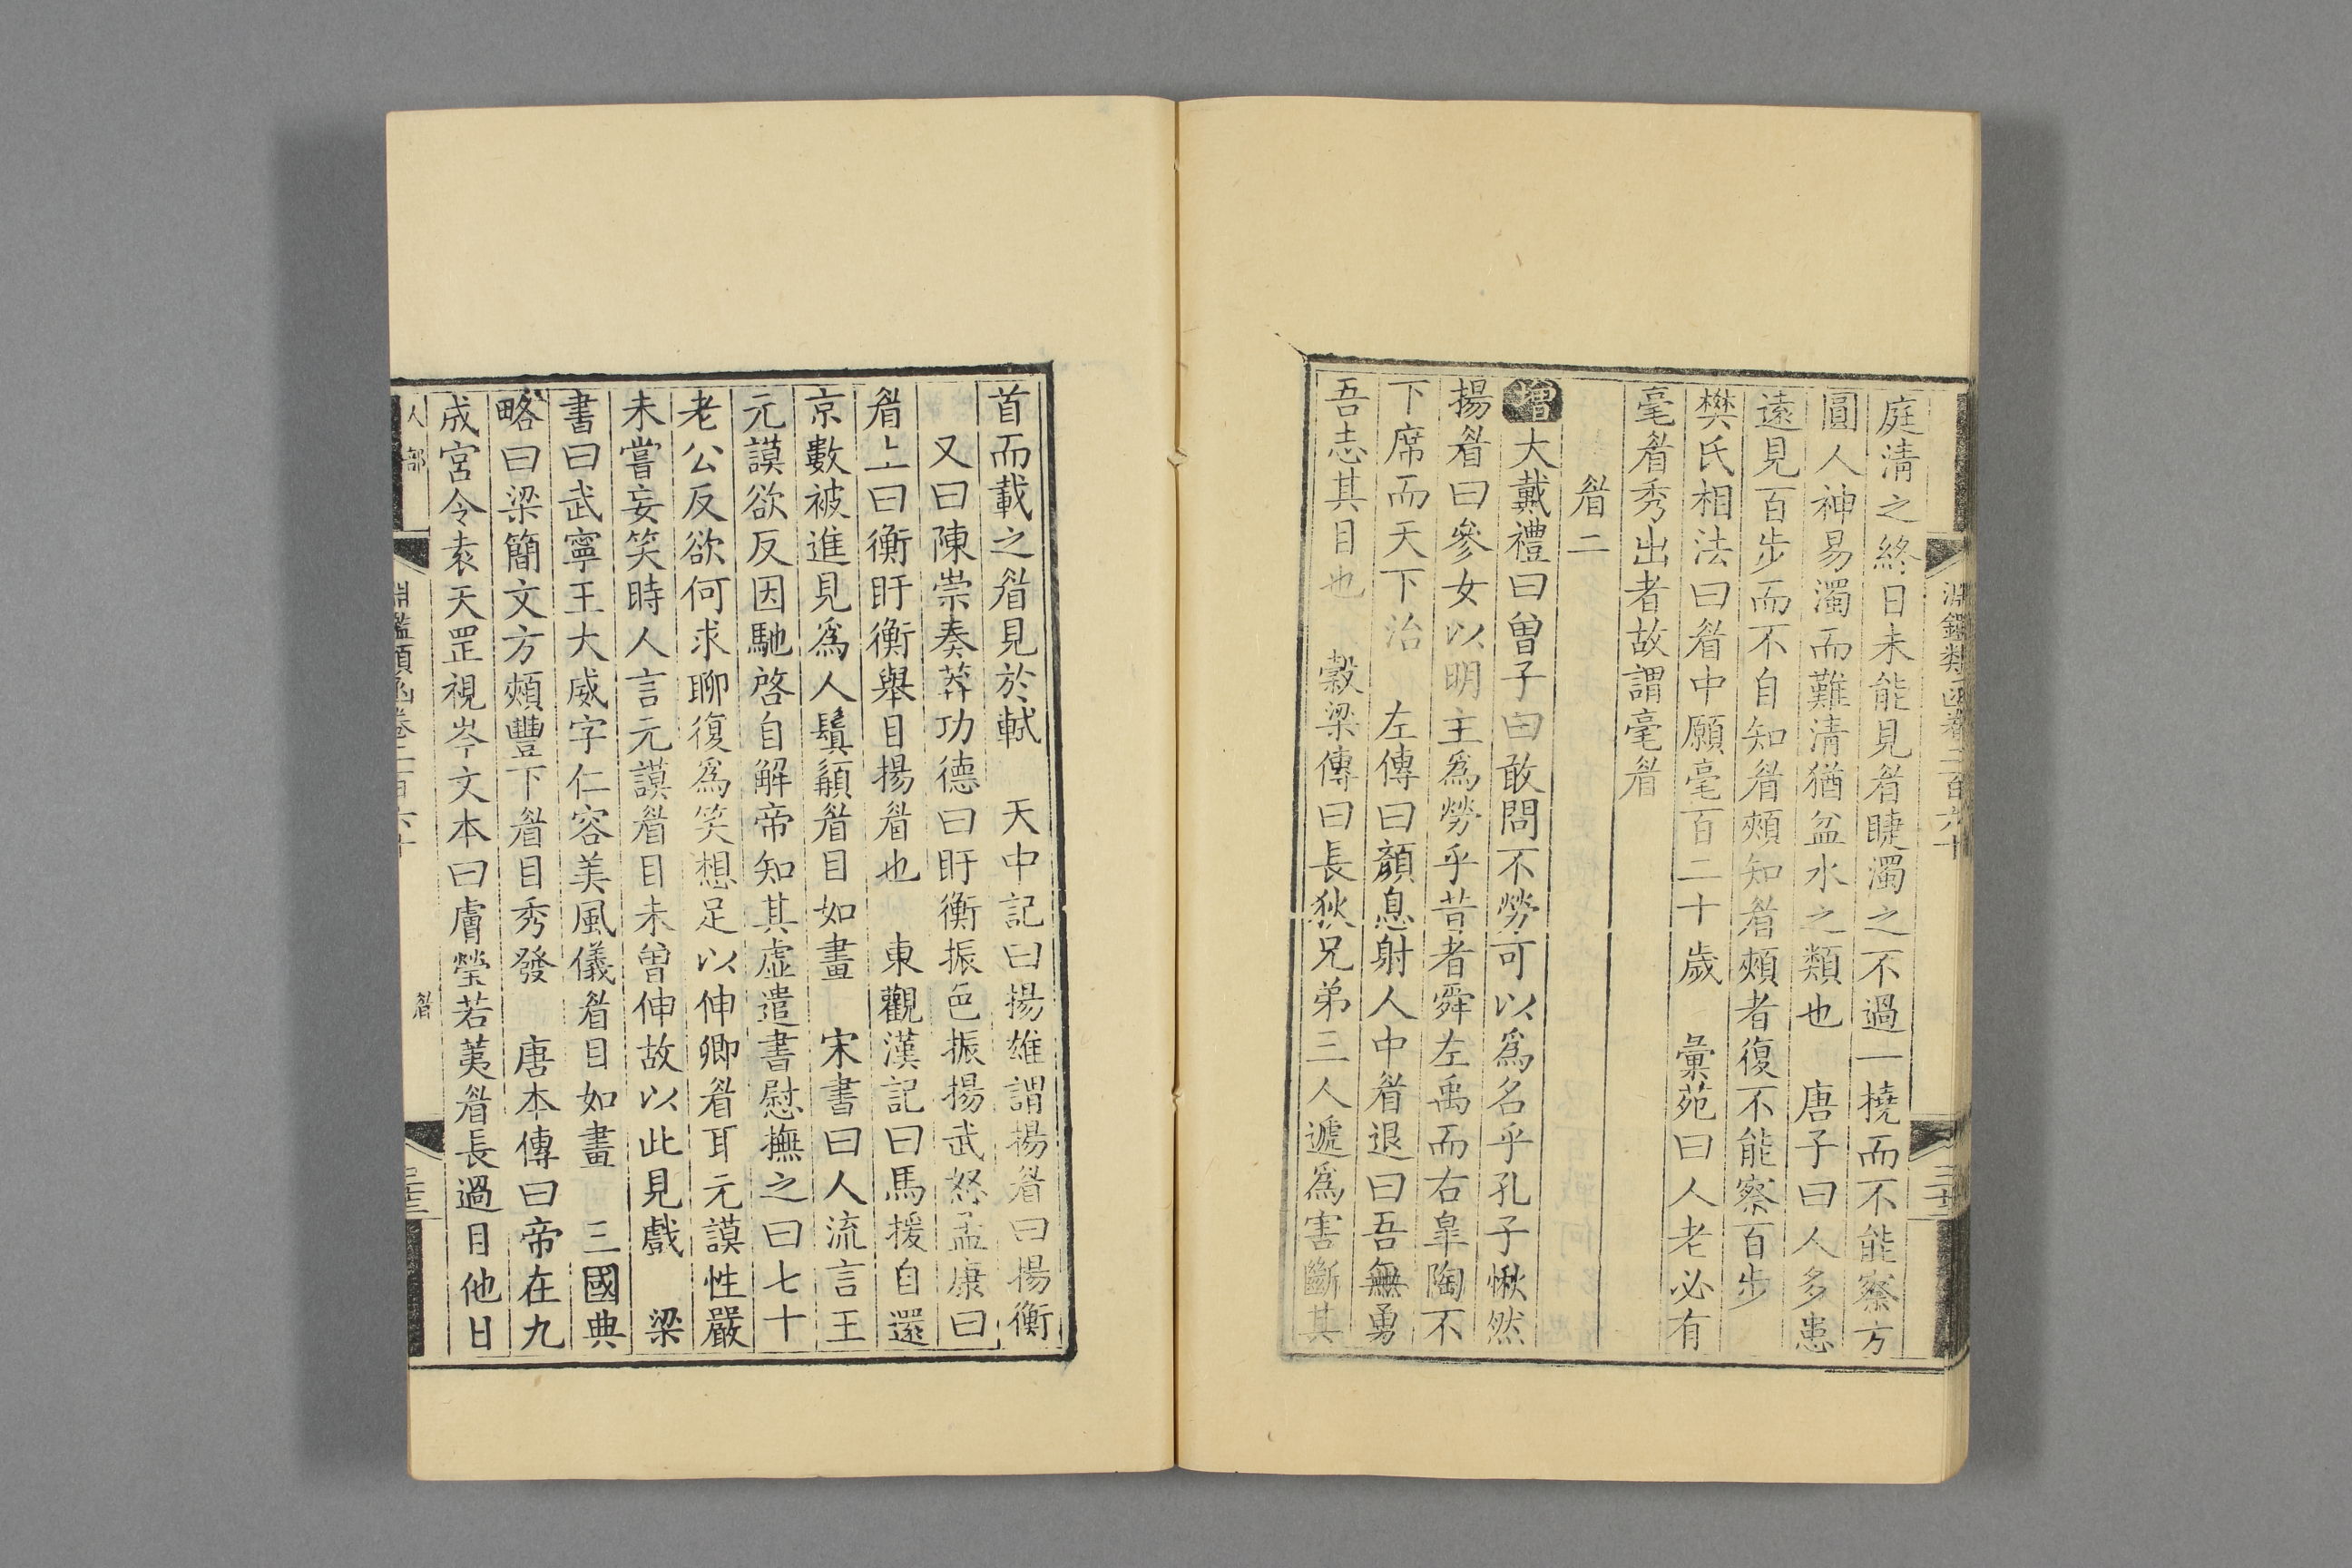 淵鑑類函卷二百六十
庭清之終日未能見眉睫濁之不過一撓而不能察方
圓人神易濁而難清猶盆水之類也　唐子曰人多患
遠見百步而不自知眉頰知眉頰者復不能察百步
樊氏相法曰眉中願毫百二十歲　彙苑曰人老必有
毫眉秀出者故謂毫眉
眉二
增大戴禮曰曾子曰敢問不勞可以爲名乎孔子愀然
揚眉曰參女以明主爲勞乎昔者舜左禹而右皐陶不
下席而天下治　左傳曰顏息射人中眉退曰吾無勇
吾志其目也　穀梁傳曰長狄兄弟三人遞爲害斷其
首而載之眉見於軾　天中記曰揚雄謂揚眉曰揚衡
又曰陳崇奏莽功德曰盱衡振色振揚武怒孟康曰
眉上曰衡盱衡舉目揚眉也　東觀漢記曰馬援自還
京數被進見爲人鬚顙眉目如畫　宋書曰人流言王
元謨欲反因馳啓自解帝知其虛遣書慰撫之曰七十
老公反欲何求聊復爲笑想足以伸卿眉耳元謨性嚴
未嘗妄笑時人言元謨眉目未曾伸故以此見戲　梁
書曰武寧王大威字仁容美風儀眉目如畫　三國典
略曰梁簡文方頰豐下眉目秀發　唐本傳曰帝在九
成宮令袁天罡視岑文本曰膚瑩若荑眉長過目他日
人部
淵鑑類函卷二百六十
眉